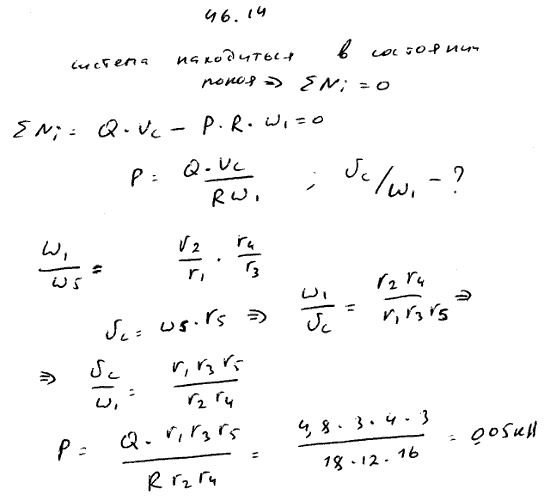 46.14
система находиться в состоянии
покоя ⇒ Σ Nᵢ = 0
Σ Nᵢ = Q · Vc − P · R · ω₁ = 0
P = Q · Vc / Rω₁ ; Vc/ω₁ − ?
ω₁/ω5 = r₂/r₁ · r₄/r₃
Vc = ω5 · r₅ ⇒ ω₁/Vc = r₂ r₄ / r₁ r₃ r₅ ⇒
⇒ Vc/ω₁ = r₁ r₃ r₅ / r₂ r₄
P = Q · r₁ r₃ r₅ / R r₂ r₄ = 4,8 · 3 · 4 · 3 / 18 · 12 · 16 = 0,05кН